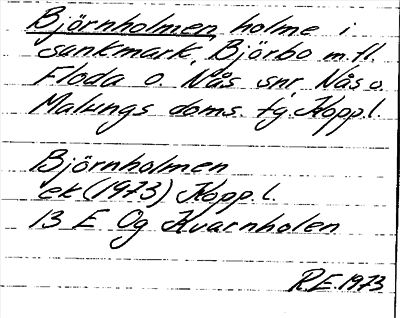 Björnholmen, holme i
sankmark, Björbo m fl.
Floda o. Nås snr, Nås o.
Malungs doms. fg. Kopp. l.
Björnholmen
ek (1973) Kopp. l.
13 E 0g Kvarnholen
R.E. 1973